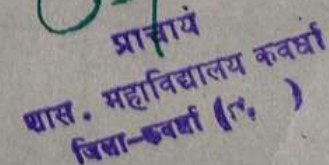 प्राचार्य
शास. महाविद्यालय कवर्धा
जिला-कवर्धा (